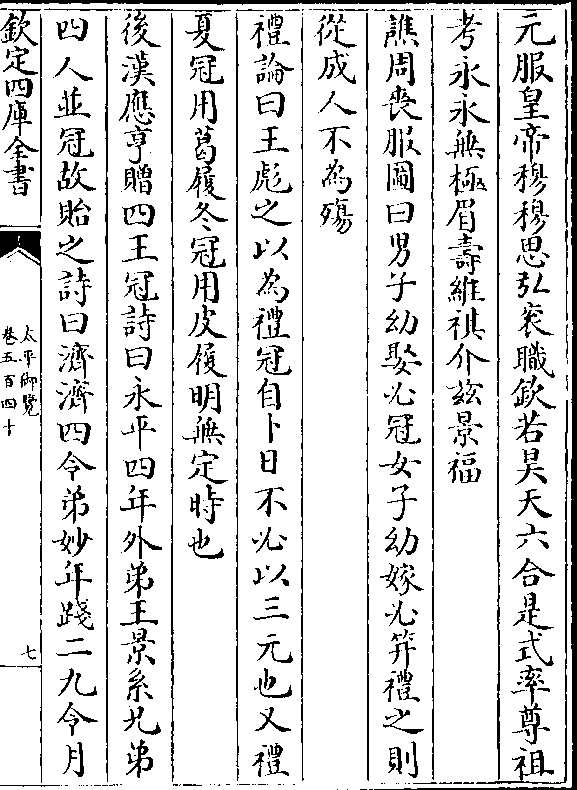 元服皇帝穆穆思弘衮職欽若昊天六合是式率尊祖
考永永無極眉壽維祺介兹景福
譙周喪服圖曰男子幼娶必冠女子幼嫁必笄禮之則
從成人不為殤
禮論曰王彪之以為禮冠自卜日不必以三元也又禮
夏冠用葛履冬冠用皮履明無定時也
後漢應亨贈四王冠詩曰永平四年外弟王景系兄弟
四人並冠故貽之詩曰濟濟四令弟妙年踐二九令月
欽定四庫全書
太平御覽
卷五百四十
七